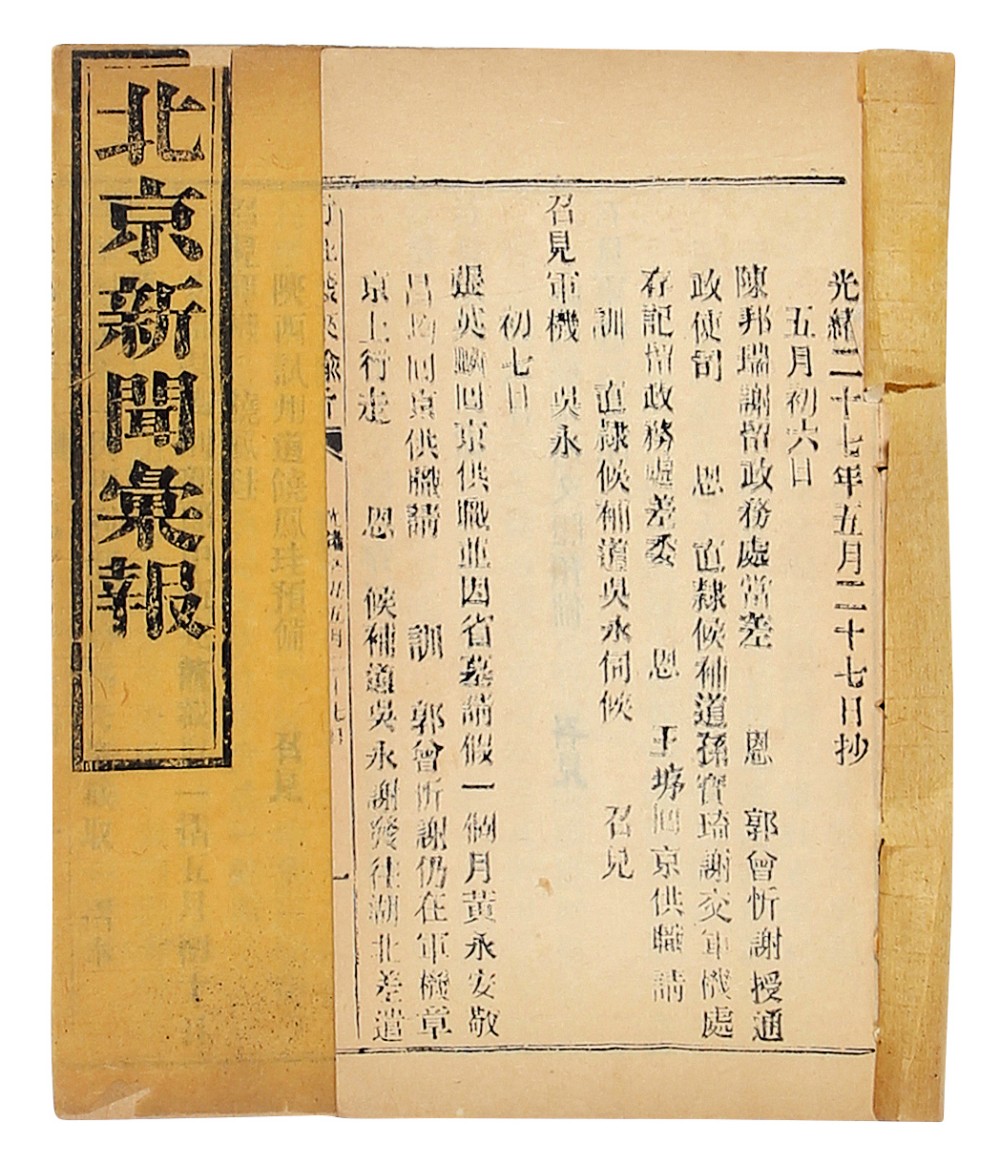 北京新聞彙報
光緒二十七年五月二十七日抄
五月初六日
陳邦瑞謝留政務處當差 恩 郭曾炘謝授通
政使司 恩 直隸候補道孫寶琦謝交軍機處
存記留政務處差委 恩 王塝回京供職請
訓 直隸候補道吳永伺候 召見
召見軍機 吳永
初七日
張英麟回京供職並因省墓請假一個月黃永安敬
呂均回京供職請 訓 郭曾炘謝仍在軍機章
京上行走 恩 候補道吳永謝發往湖北差遣